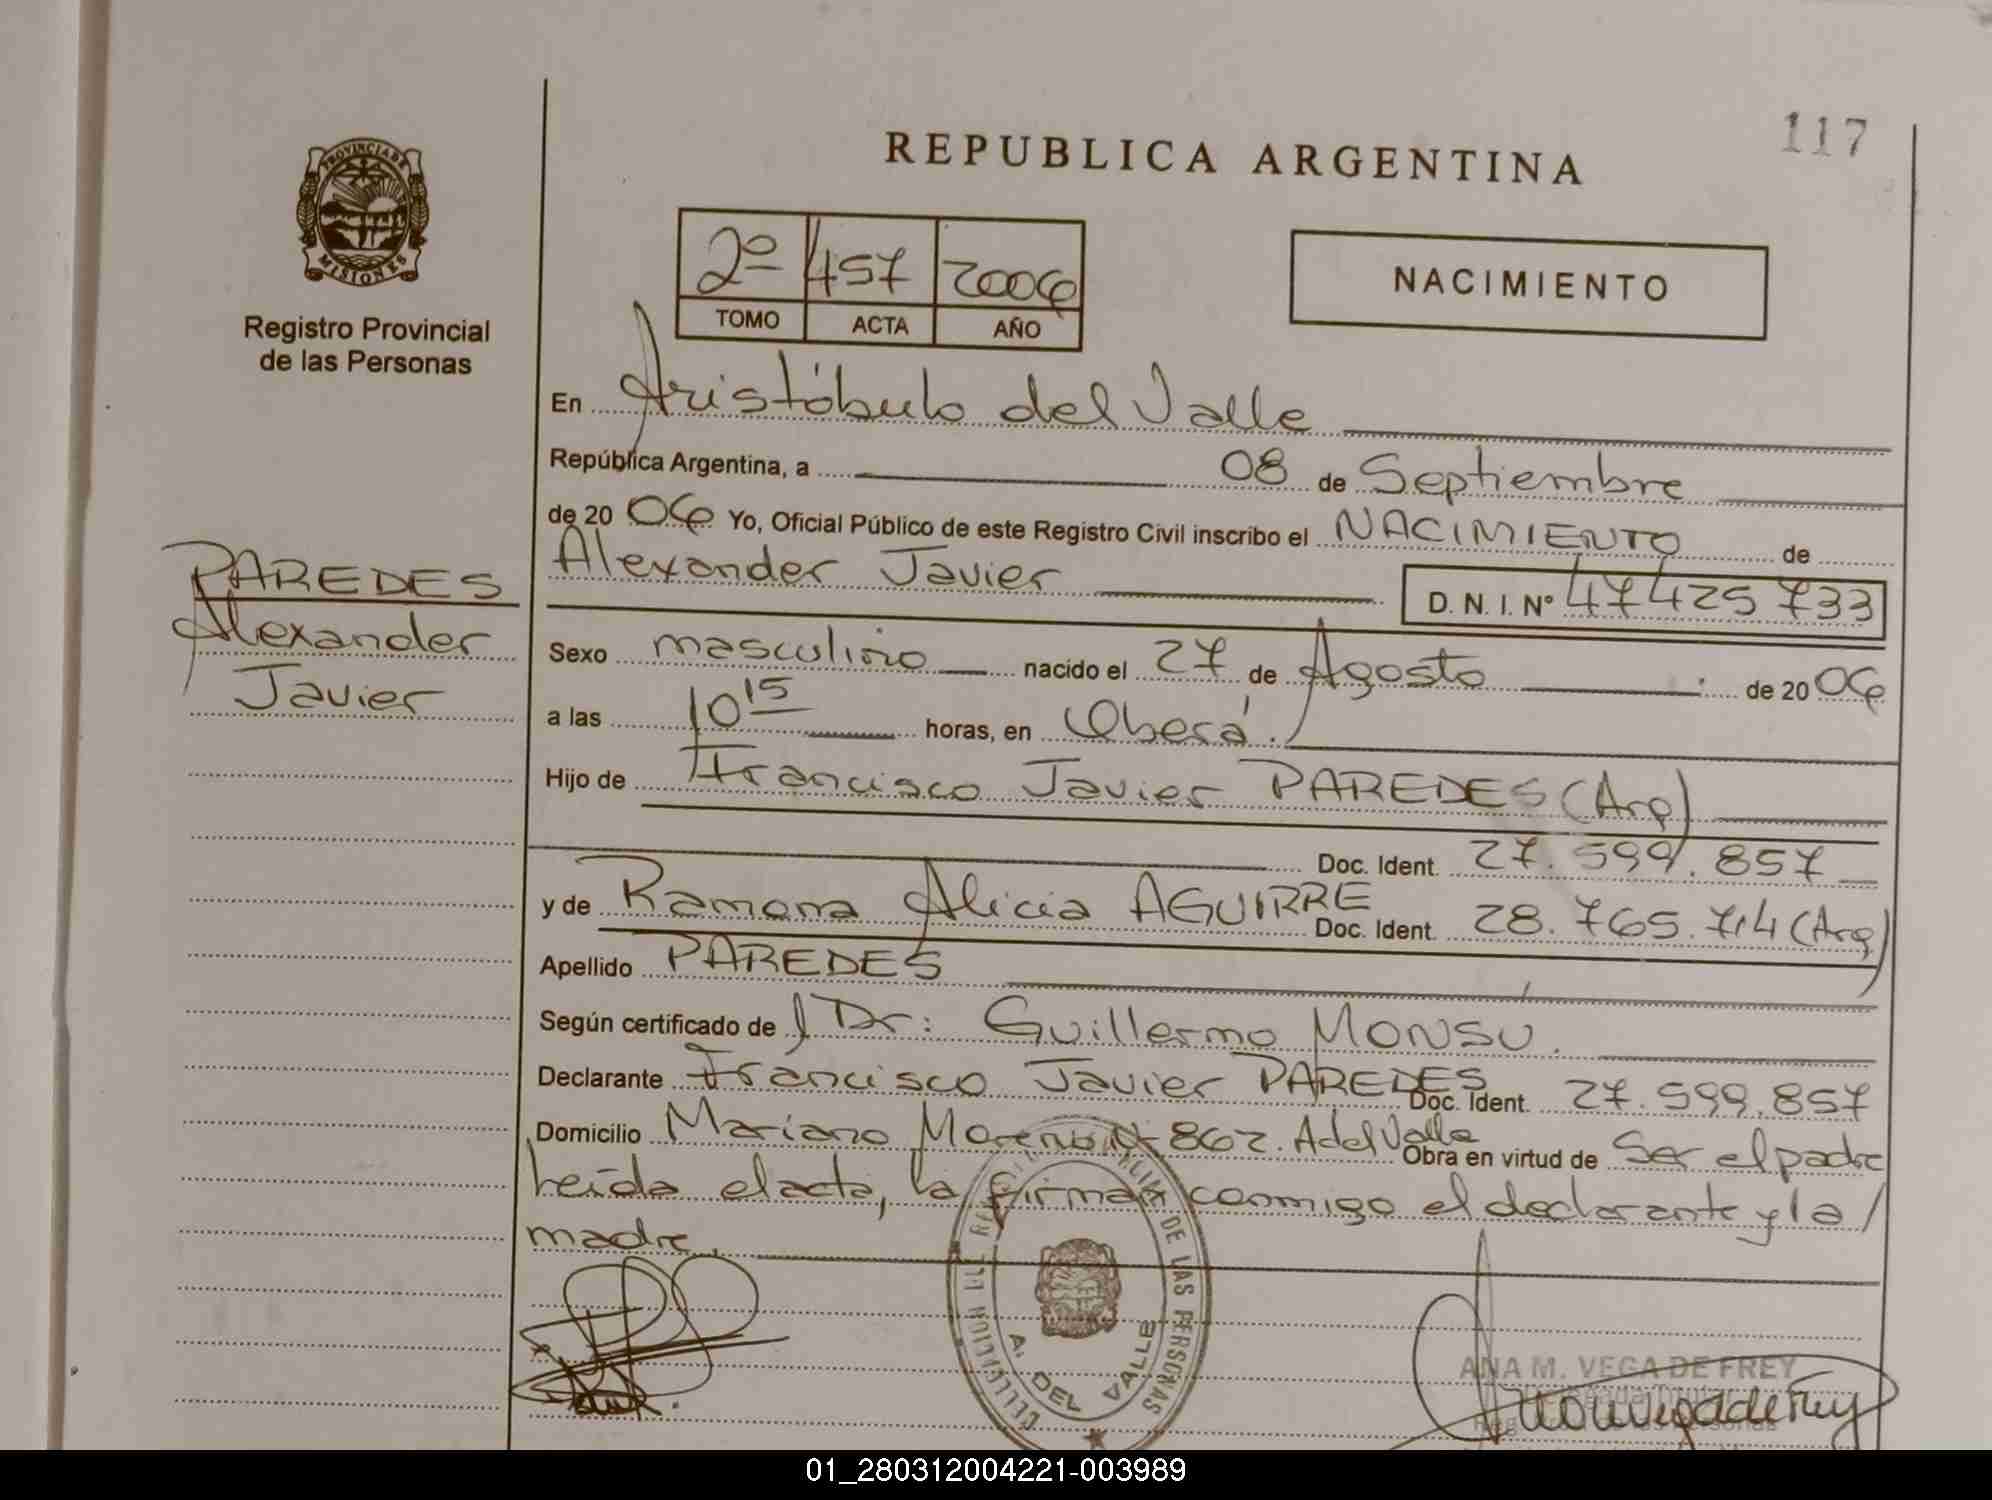 117
REPUBLICA ARGENTINA
PROVINCIA DE
MISIONES
Registro Provincial
de las Personas
2º 457 2006
TOMO ACTA AÑO
NACIMIENTO
En Aristóbulo del Valle
República Argentina, a 08 de Septiembre
de 20 06 Yo, Oficial Público de este Registro Civil inscribo el NACIMIENTO de
Alexander Javier D. N. I. Nº 47425733
PAREDES
Alexander
Javier
Sexo masculino nacido el 27 de Agosto de 20 06
a las 10 15 horas, en Oberá.
Hijo de Francisco Javier PAREDES (Arg)
Doc. Ident. 27.599.857
y de Ramona Alicia AGUIRRE Doc. Ident. 28.765.714 (Arg)
Apellido PAREDES
Según certificado de / Dr: Guillermo MONSU.
Declarante Francisco Javier PAREDES Doc. Ident. 27.599.857
Domicilio Mariano Moreno Nº 862. A del Valle Obra en virtud de Ser el padre
leída el acta, la firman conmigo el declarante y la /
madre.
DE LAS PERSONAS
A. DEL VALLE
ANA M. VEGA DE FREY
01_280312004221-003989